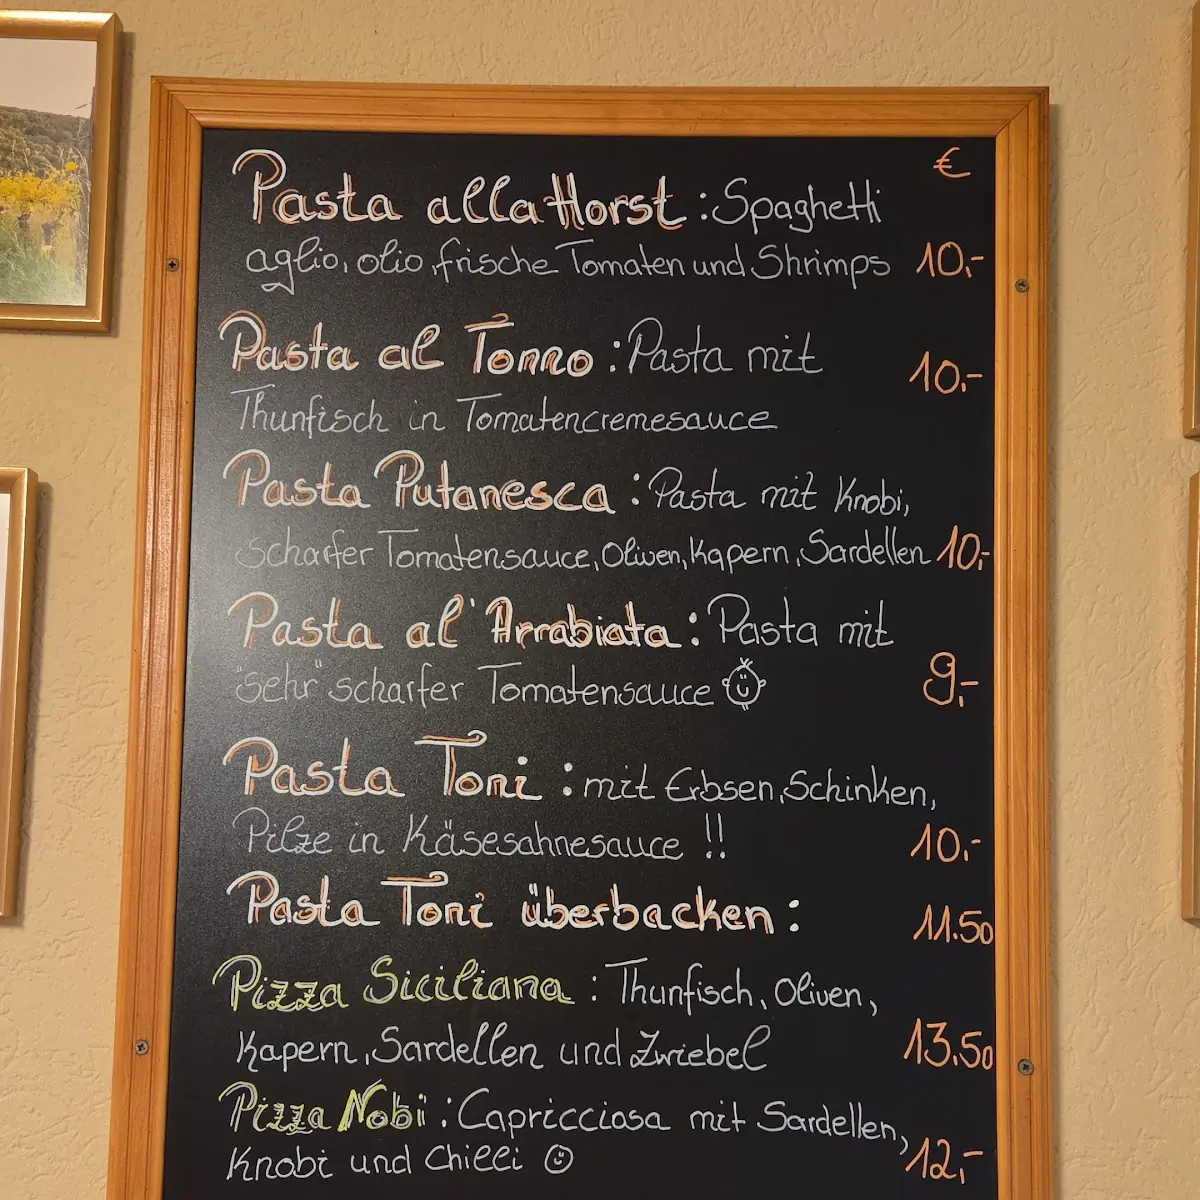 €
Pasta alla Horst : Spaghetti
aglio, olio, frische Tomaten und Shrimps 10,-
Pasta al Tonno : Pasta mit
10.-
Thunfisch in Tomatencremesauce
Pasta Putanesca : Pasta mit Knobi,
scharfer Tomatensauce, Oliven, Kapern, Sardellen 10,-
Pasta al' Arrabiata : Pasta mit
"sehr" scharfer Tomatensauce 9,-
Pasta Toni : mit Erbsen, Schinken,
Pilze in Käsesahnesauce !! 10.-
Pasta Toni überbacken : 11.50
Pizza Siciliana : Thunfisch, Oliven,
Kapern, Sardellen und Zwiebel 13.50
Pizza Nobi : Capricciosa mit Sardellen,
Knobi und Chilli ☺ 12,-